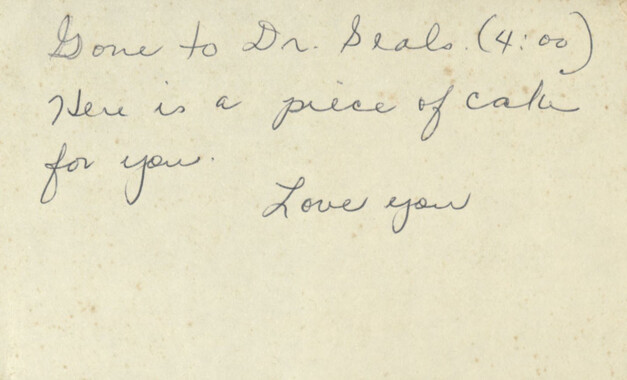 Gone to Dr. Seals. (4:00)
Here is a piece of cake
for you.
Love you